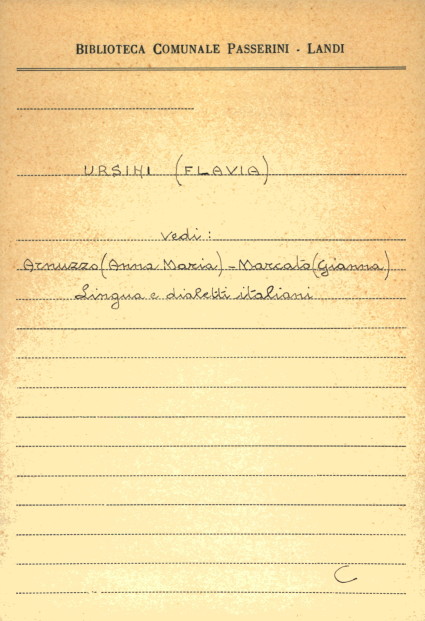 BIBLIOTECA COMUNALE PASSERINI - LANDI
URSINI (FLAVIA)
vedi:
Arnuzzo (Anna Maria) - Marcato (Gianna)
Lingua e dialetti italiani
C